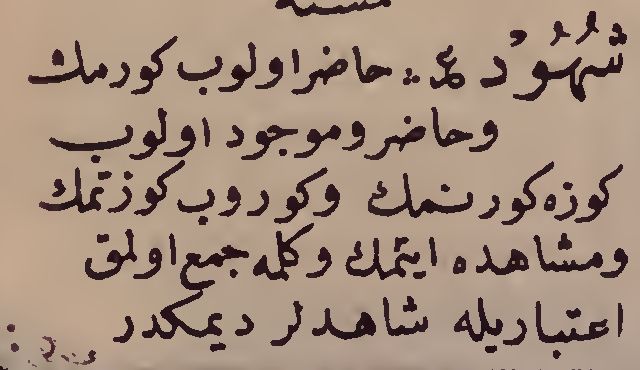 شُهُوْد ع حاضر اولوب كورمك
وحاضر وموجود اولوب
كوزه كورنمك وكوروب كوزتمك
ومشاهده ايتمك وكلمه جمع اولمق
اعتباريله شاهدلر ديمكدر